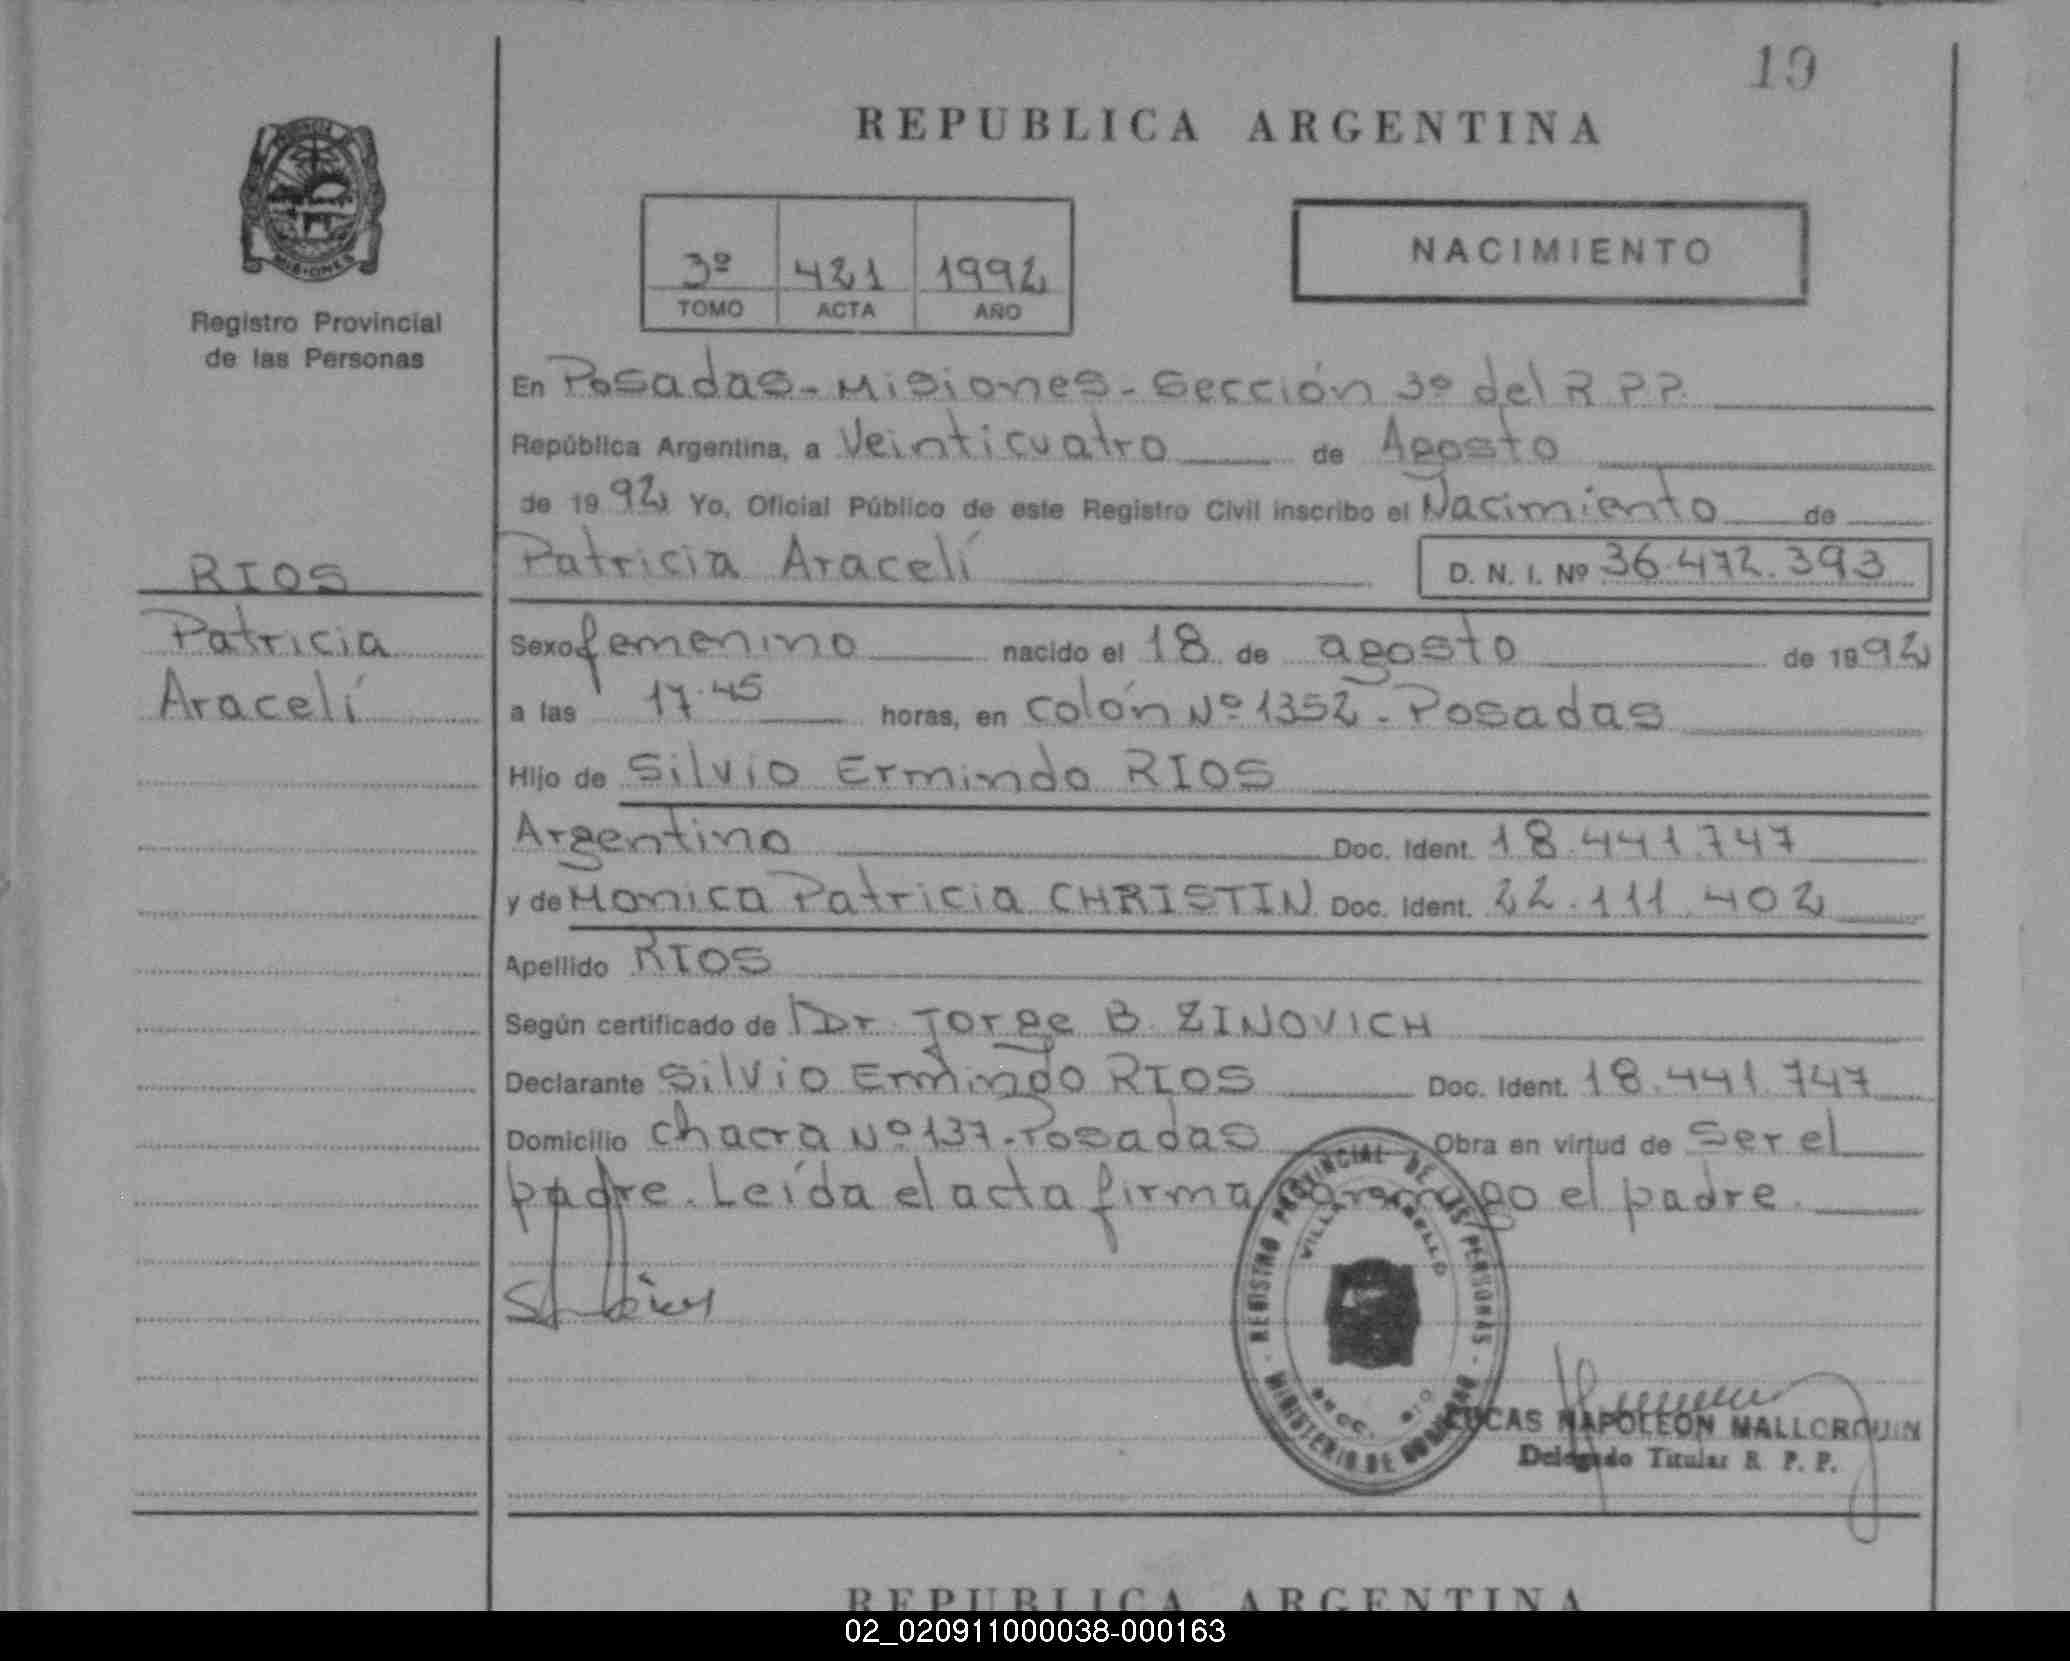 19
REPUBLICA ARGENTINA
3º 421 1992
TOMO ACTA AÑO
NACIMIENTO
MISIONES
Registro Provincial
de las Personas
RIOS
Patricia
Aracelí
En Posadas - Misiones - Sección 3º del R.P.P.
República Argentina, a Veinticuatro de Agosto
de 1992 Yo, Oficial Público de este Registro Civil inscribo el Nacimiento de
Patricia Aracelí D. N. I. Nº 36.472.393
Sexo femenino nacido el 18 de agosto de 1992
a las 17.45 horas, en Colón Nº 1352 - Posadas
Hijo de Silvio Ermindo RIOS
Argentino Doc. Ident. 18.441.747
y de Monica Patricia CHRISTIN Doc. Ident. 22.111.402
Apellido RIOS
Según certificado de Dr. Jorge B. ZINOVICH
Declarante Silvio Ermindo RIOS Doc. Ident. 18.441.747
Domicilio Chacra Nº 137 - Posadas Obra en virtud de ser el
padre. Leída el acta firma el padre.
REGISTRO PROVINCIAL DE LAS PERSONAS - MINISTERIO DE GOBIERNO
VILLA
LUCAS NAPOLEON MALLORQUIN
Delegado Titular R. P. P.
REPUBLICA ARGENTINA
02_020911000038-000163